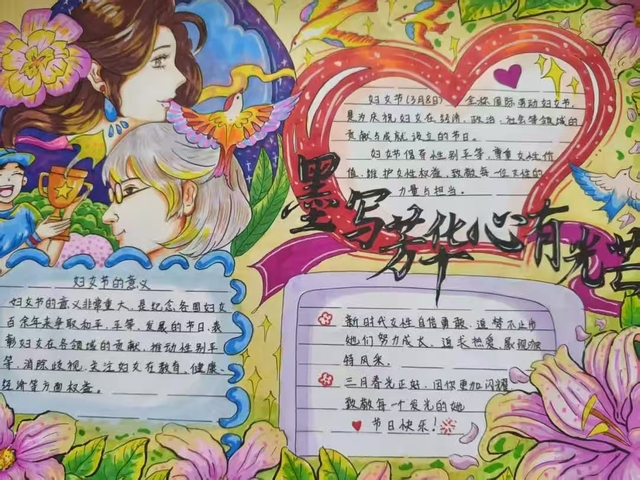 妇女节(3月8日) 全称国际劳动妇女节,
是为庆祝妇女在经济、政治、社会等领域的
贡献与成就设立的节日。
妇女节倡导性别平等,尊重女性价
值,维护女性权益,致敬每一位女性的
力量与担当。
墨写芳华心有光芒
妇女节的意义
妇女节的意义非常重大,是纪念各国妇女
百余年来争取和平、平等、发展的节日,表
彰妇女在各领域的贡献,推动性别平
等,消除歧视,关注妇女在教育、健康、
经济等方面权益。
新时代女性自信勇敢,追梦不止步
她们努力成长,追求热爱,展现独
特风采。
三月春光正好,因你更加闪耀
致敬每一个发光的她
节日快乐!